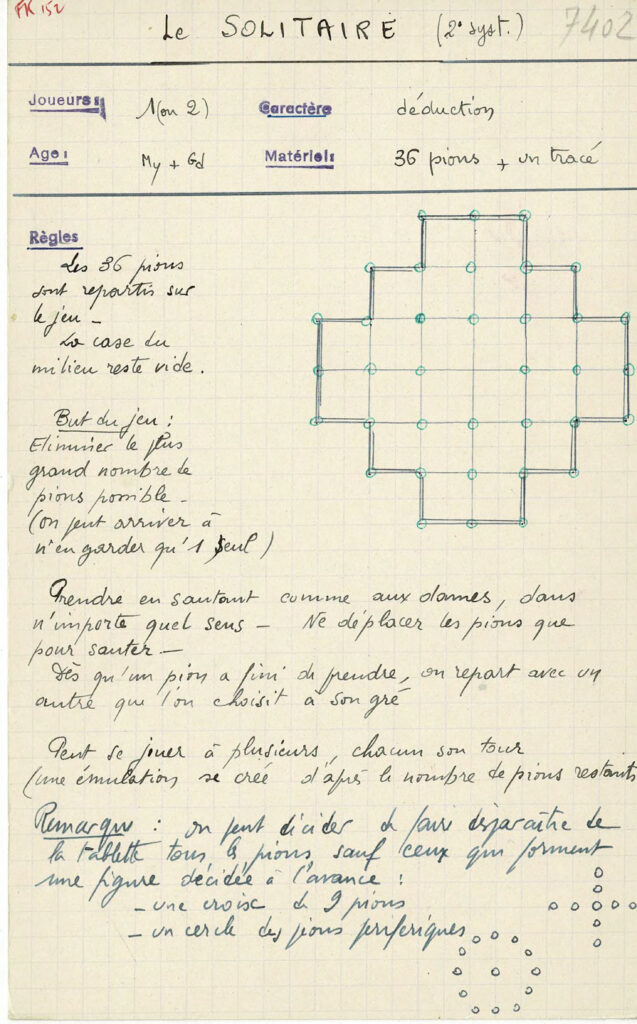 FK 152
Le SOLITAIRE (2e syst.)
7402
Joueurs: 1(ou 2) Caractère déduction
Age: My + Gd Matériel: 36 pions + un tracé
Règles
Les 36 pions
sont repartis sur
le jeu -
La case du
milieu reste vide.
But du jeu :
Eliminer le plus
grand nombre de
pions possible -
(on peut arriver à
n'en garder qu'1 seul)
Prendre en sautant comme aux dames, dans
n'importe quel sens - Ne déplacer les pions que
pour sauter -
Dès qu'un pion a fini de prendre, on repart avec un
autre que l'on choisit à son gré
Peut se jouer à plusieurs, chacun son tour
(une émulation se créé d'après le nombre de pions restants
Remarque : on peut décider de faire disparaître de
la tablette tous les pions sauf ceux qui forment
une figure décidée à l'avance :
- une croix de 9 pions
- un cercle des pions periferiques